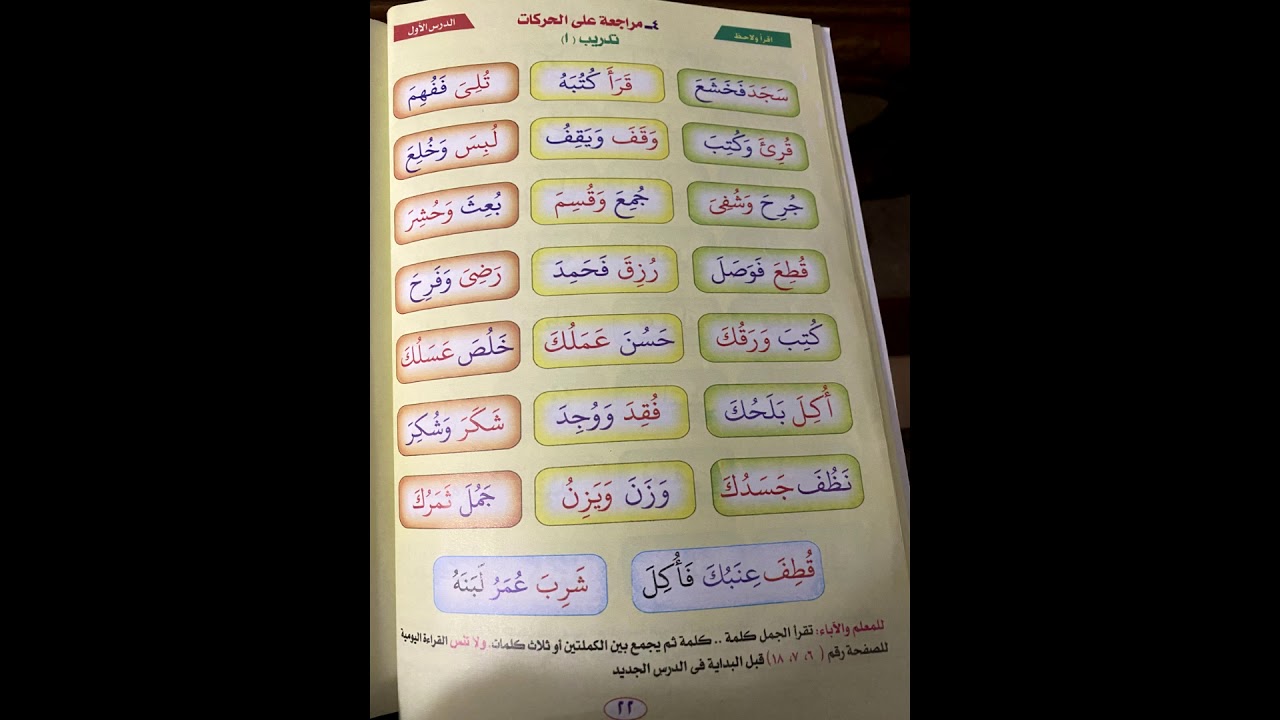 الدرس الأول
٤ـ مراجعة على الحركات
اقرأ ولاحظ
تدريب (١)
سَجَدَ فَخَشَعَ قَرَأَ كُتُبَهُ تُلِىَ فَفُهِمَ
قُرِئَ وَكُتِبَ وَقَفَ وَيَقِفُ لُبِسَ وَخُلِعَ
جُرِحَ وَشُفِىَ جُمِعَ وَقُسِمَ بُعِثَ وَحُشِرَ
قُطِعَ فَوَصَلَ رُزِقَ فَحَمِدَ رَضِىَ وَفَرِحَ
كُتِبَ وَرَقُكَ حَسُنَ عَمَلُكَ خَلُصَ عَسَلُكَ
أُكِلَ بَلَحُكَ فُقِدَ وَوُجِدَ شَكَرَ وَشُكِرَ
نَظُفَ جَسَدُكَ وَزَنَ وَيَزِنُ جَمُلَ ثَمَرُكَ
قُطِفَ عِنَبُكَ فَأُكِلَ شَرِبَ عُمَرُ لَبَنَهُ
للمعلم والآباء: تقرأ الجمل كلمة .. كلمة ثم يجمع بين الكملتين أو ثلاث كلمات. ولا تنس القراءة اليومية
للصفحة رقم ( ٦، ٧، ١٨) قبل البداية فى الدرس الجديد
٢٢